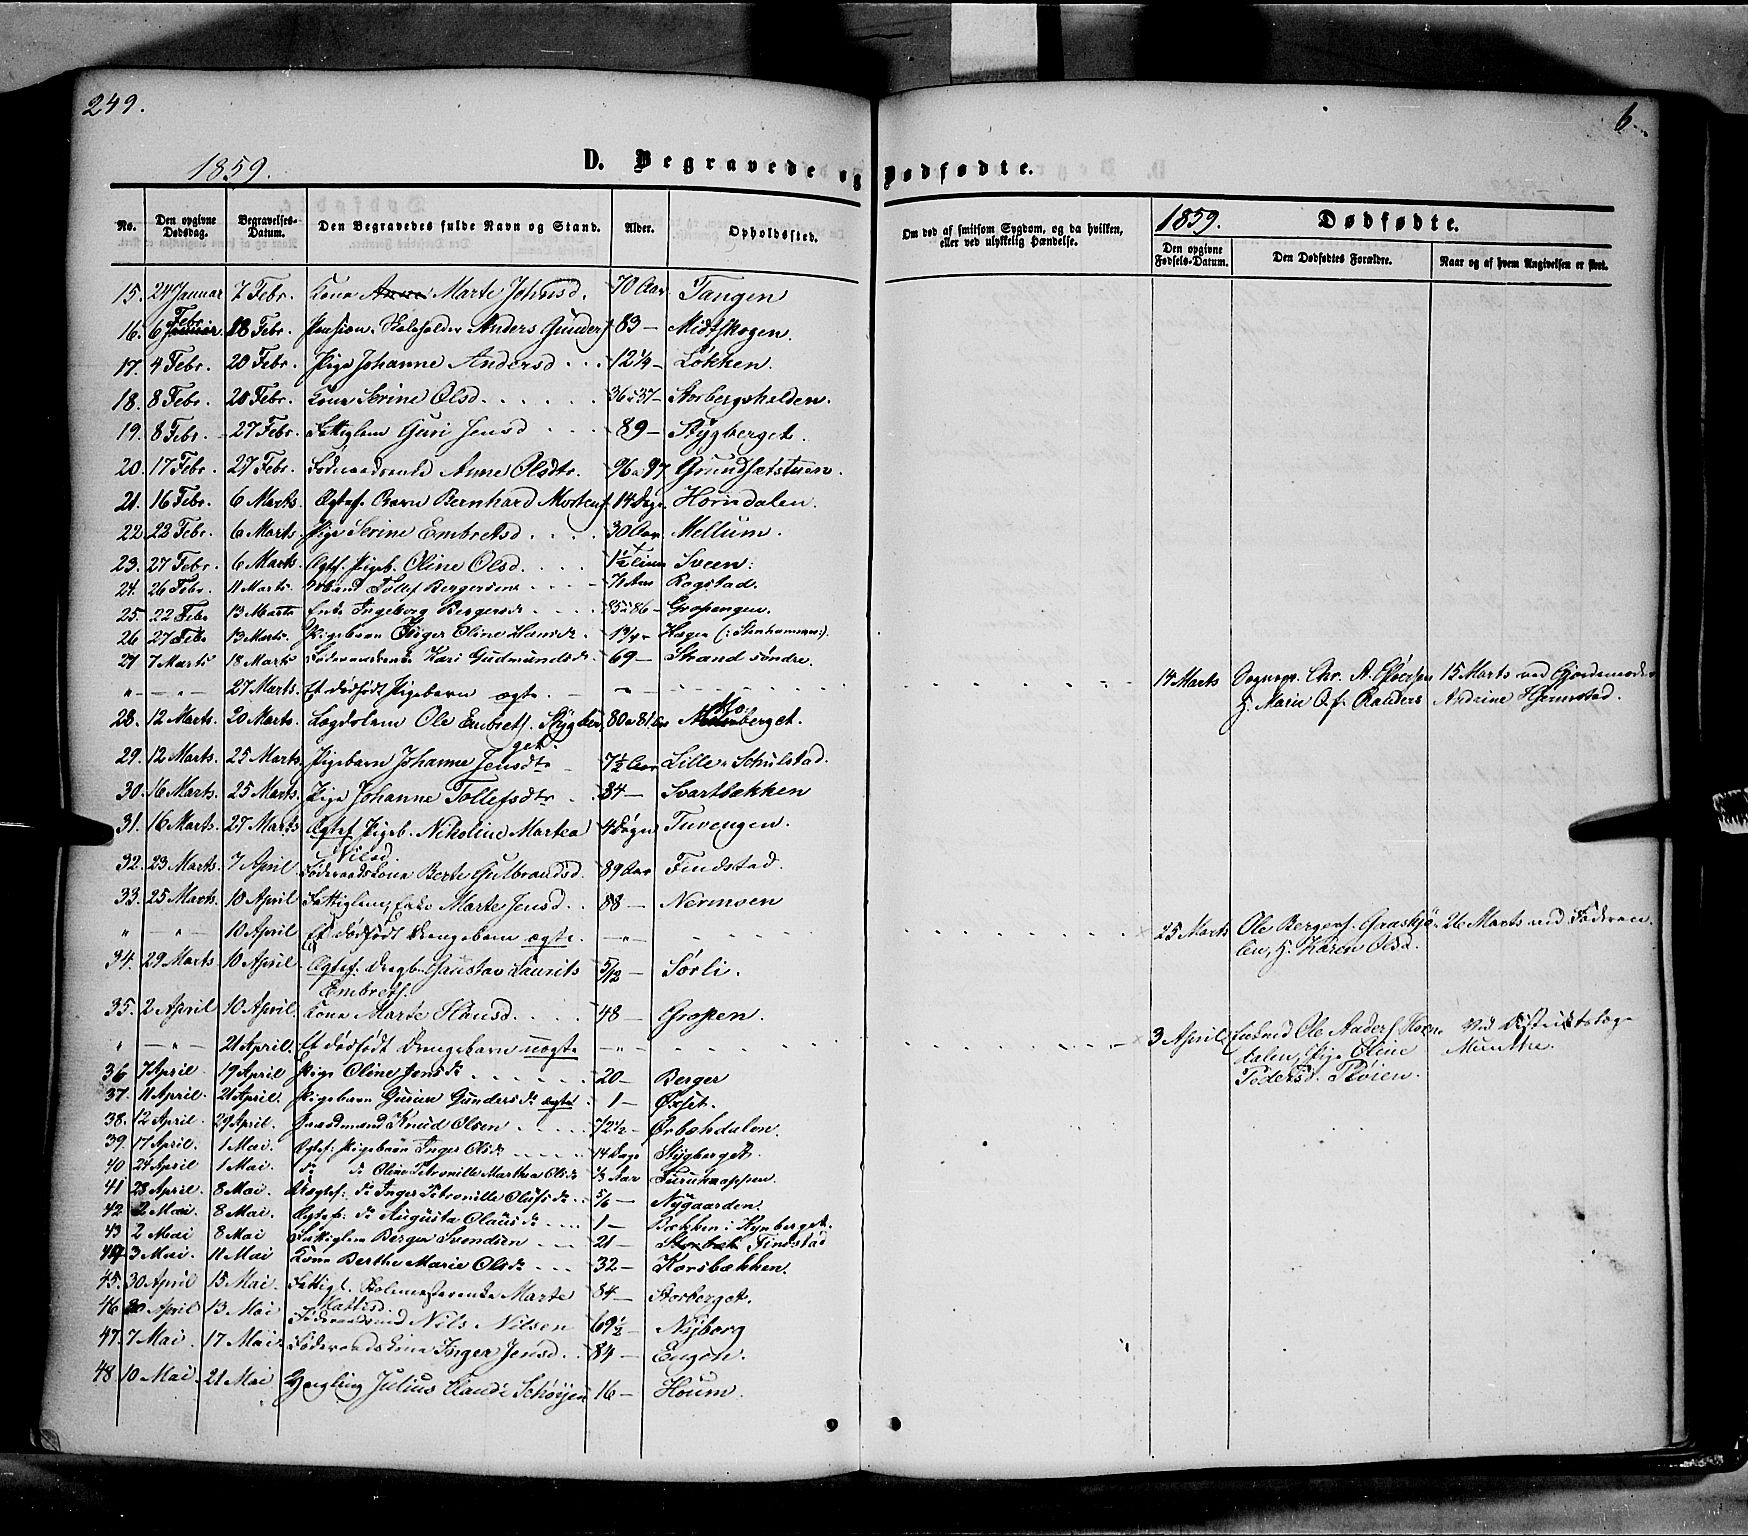 249.
6
1859.
D. Begravede og Dødfødte.
No. Den opgivne Dødsdag. Begravelses-Datum. Den Begravedes fulde Navn og Stand. Alder. Opholdssted. Om død af smitsom Sygdom, og da hvilken, eller ved ulykkelig Hændelse. 1859. Dødfødte.
Den opgivne Fødsels-Datum. Den Dødfødtes Forældre. Naar og af hvem Angivelsen er skeet.
15. 24 Januar 7 Febr. Kona Anne Marte Johnsd. 70 Aar Tangen
16. 6 Febr. Januar 18 Febr. Pension. Skoleholder Anders Gunders. 83 — Midtskogen.
17. 4 Febr. 20 Febr. Pige Johanne Andersd 12 1/4 — Løkken.
18. 8 Febr. 20 Febr. Kone Serine Olsd. 36 a 37 — Storbergsholden.
19. 8 Febr. 27 Febr. Fattiglem Guri Jensd 89 — Stygberget.
20. 17 Febr. 27 Febr. Føderaadsenke Anne Olsdtr. 96 a 97 Grundsætstuen.
21. 16 Febr. 6 Marts. Ægtef. Barn Bernhard Mortens. 14 Dage Horndalen.
22. 22 Febr. 6 Marts. Pige Serine Embretsd 30 Aar Mellum.
23. 27 Febr. 6 Marts. Ægtef. Pigeb. Oline Olsd. 1/2 Time Sveen.
24. 26 Febr. 11 Marts. Tollef Bergersen 71 Aar Rogstad.
25. 22 Febr 13 Marts Enke Ingeborg Bergersdr 85 a 86 — Gropengen.
26 27 Febr 13 Marts. Pigebarn Inger Oline Hansdr 1 3/4 — Hagen (: Stenhammer:).
27 7 Marts 18 Marts Føderaadsenke Kari Gudmundsdr. 69 — Strand søndre.
" — " — 27 Marts. Et dødfødt Pigebarn ægte. — " — 14 Marts Sognepr. Chr. A. Gløersen 15 Marts ved Gjordemoder
H. Marie O. f. Randers Andrine Hjemstad.
28. 12 Marts. 20 Marts. Lægdslem Ole Embrets. Stygber 80 a 81 Aar berget.
get.
29. 12 Marts. 25 Marts. Pigebarn Johanne Jensdtr 7 1/2 Aar Lille Schulstad.
30. 16 Marts. 25 Marts. Pige Johanne Tollefsdtr. 84 — Svartbækken
31. 16 Marts. 27 Marts Ægtef. Pigeb. Nikoline Martea 4 Døgn Tuvengen.
Nilsd.
32. 23 Marts. 7 April Føderaadskona Berte Gulbrandsd. 89 Aar Findstad.
33. 25 Marts. 10 April Fattiglem, Enke Marte Jensd. 88 — Nermoen
" — " — 10 April Et dødfødt Drengebarn ægte. — " — 25 Marts Ole Bergers. Graasljø- 26 Marts ved Faderen.
len, H. Karen Olsd.
34. 29 Marts 10 April. Ægtef. Drengb. Gustav Laurits 5/12 — Sorli.
Embrets.
35. 2 April 10 April. Kone Marte Hansd. 48 — Gropen.
" — " — 21 April. Et dødfødt Drengebarn uægte — " — 3 April Ole Anders. Horn- Ved Distriktslæge
dalen, Pige Oline Munthe.
Pedersd. Pløien.
36 7 April 19 April Pige Oline Jensdr 20 — Berger
37. 11 April. 21 April. Pigebarn Gurine Gundersdr ægte 1 — Øxset.
38. 12 April 29 April. Gaardmand Knud Olsen 72 1/2 — Ørbækdalen.
39. 17 April. 1 Mai. Ægtef. Pigebarn Inger Olsdr 14 Dage Stygberget.
40 24 April 1 Mai. do do Oline Petronille Marthea Olsdr 1/3 Aar Furuknappen.
41 28 April. 8 Mai. Uægtef. do Inger Petronille Olufsdr. 5/6 — Nygaarden.
42 2 Mai 8 Mai. Ægtef. do Augusta Olausdr. 1 — Bækken i Kynberget.
43 2 Mai 8 Mai Fattiglem Berger Svendsen 21 — Storbæk Findstad
44 3 Mai. 11 Mai Kone Berthe Marie Olsdr 32 — Korsbækken.
45. 30 April 15 Mai. Fattigl. Skolemesterenke Marte 84 — Storberget.
Mattisd.
46 20 April 13 Mai Føderaadsmd Nils Nilsen 69 1/2 — Nyborg
47. 7 Mai 17 Mai. Føderaadskona Inger Jensd. 84 — Engen.
48 10 Mai. 21 Mai Yngling Julius Claudi Schøyen 16 — Houm.